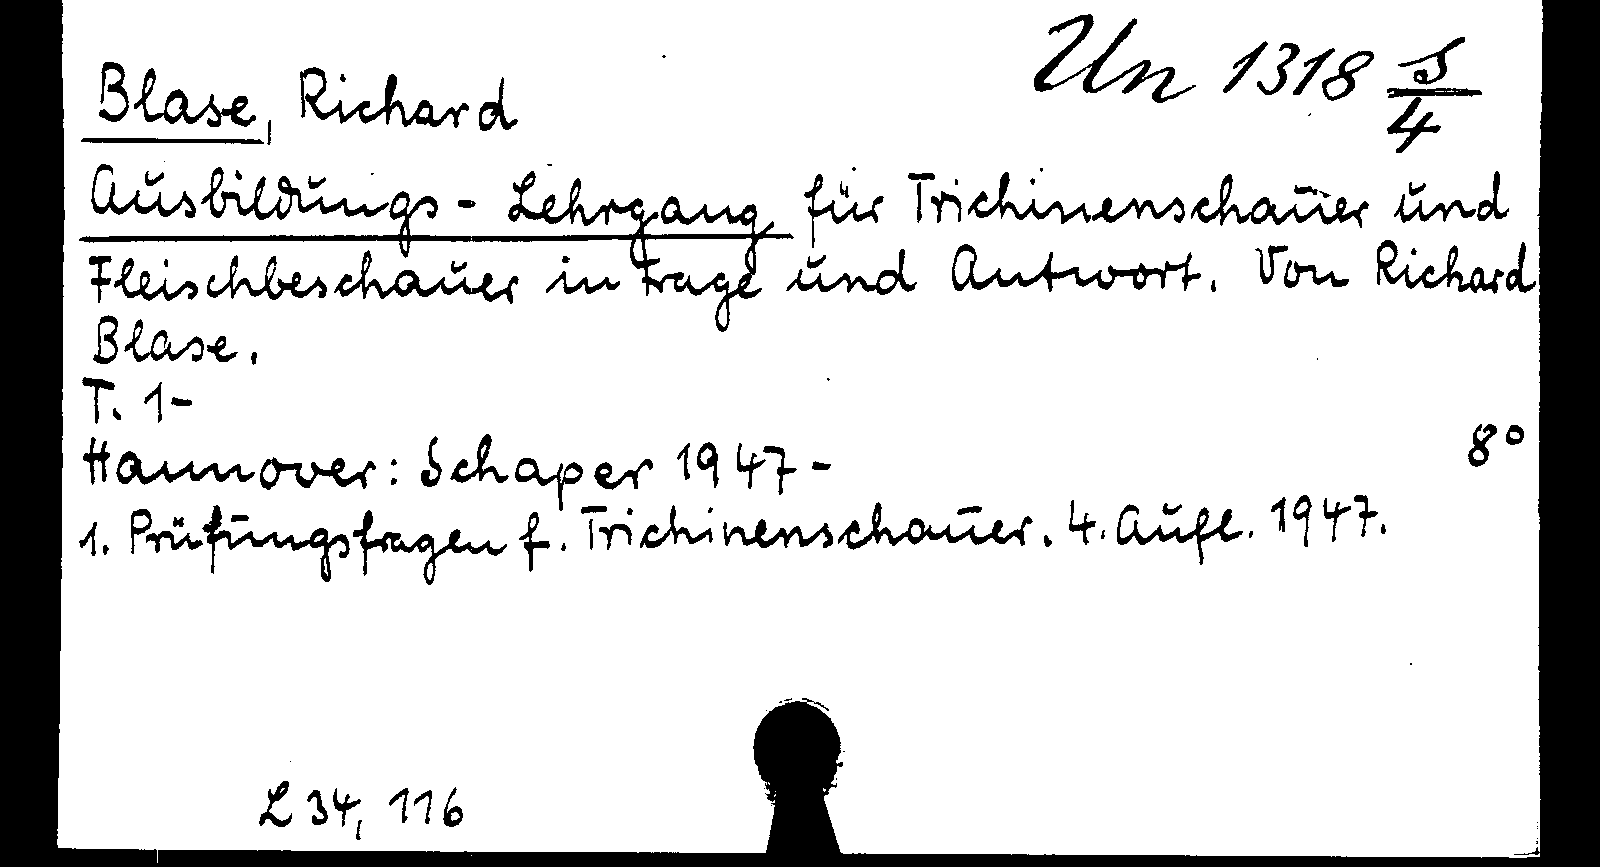 Un 1318 S/4
Blase, Richard
Ausbildungs-Lehrgang für Trichinenschauer und
Fleischbeschauer in Frage und Antwort. Von Richard
Blase.
T. 1-
8°
Hannover: Schaper 1947-
1. Prüfungsfragen f. Trichinenschauer. 4. Aufl. 1947.
L 34, 116